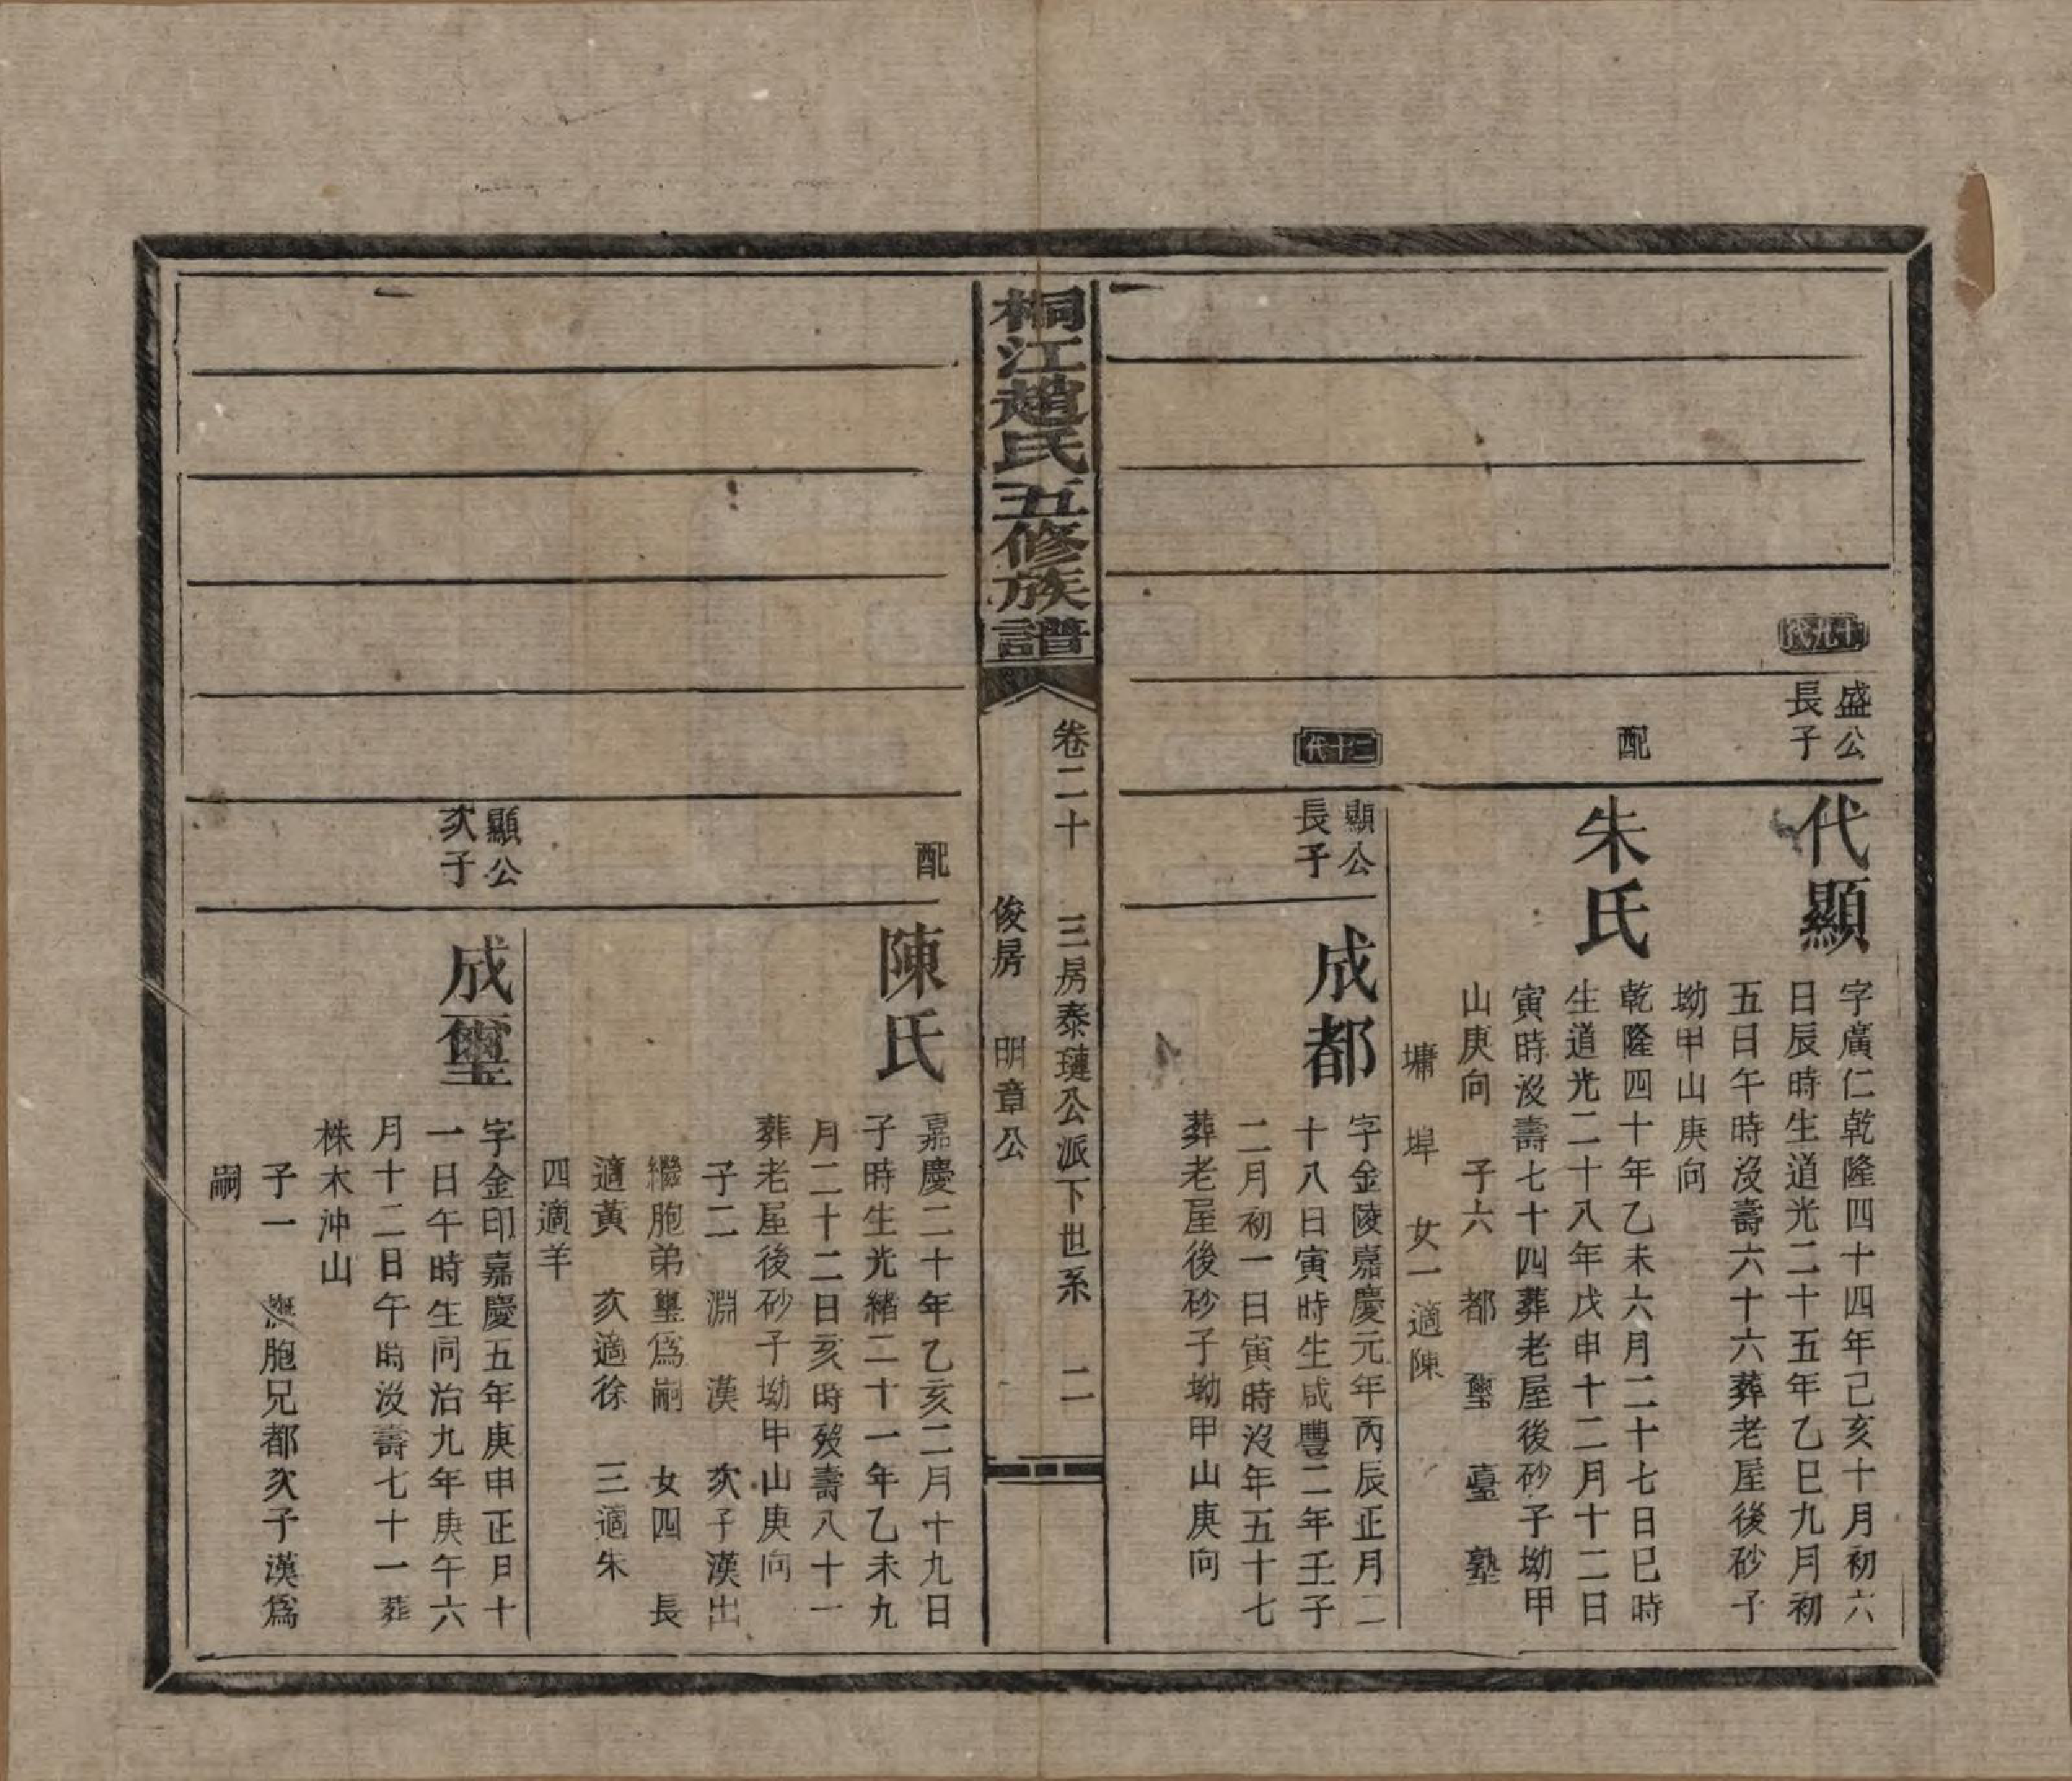 十九代
盛公
長子
代顯
字廣仁乾隆四十四年己亥十月初六
日辰時生道光二十五年乙巳九月初
五日午時沒壽六十六葬老屋後砂子
坳甲山庚向
配
朱氏
乾隆四十年乙未六月二十七日巳時
生道光二十八年戊申十二月十二日
寅時沒壽七十四葬老屋後砂子坳甲
山庚向 子六 都 璽 臺 塾
墉 埠 女一適陳
二十代
顯公
長子
成都
字金陵嘉慶元年丙辰正月二
十八日寅時生咸豐二年壬子
二月初一日寅時沒年五十七
葬老屋後砂子坳甲山庚向
桐江趙氏五修族譜
卷二十 三房泰璉公派下世系 二
俊房 明章公
配
陳氏
嘉慶二十年乙亥二月十九日
子時生光緒二十一年乙未九
月二十二日亥時歿壽八十一
葬老屋後砂子坳甲山庚向
子二 淵 漢 次子漢出
繼胞弟璽爲嗣 女四 長
適黃 次適徐 三適朱
四適羊
顯公
次子
成璽
字金印嘉慶五年庚申正月十
一日午時生同治九年庚午六
月十二日午時沒壽七十一葬
株木沖山
子一 撫胞兄都次子漢爲
嗣